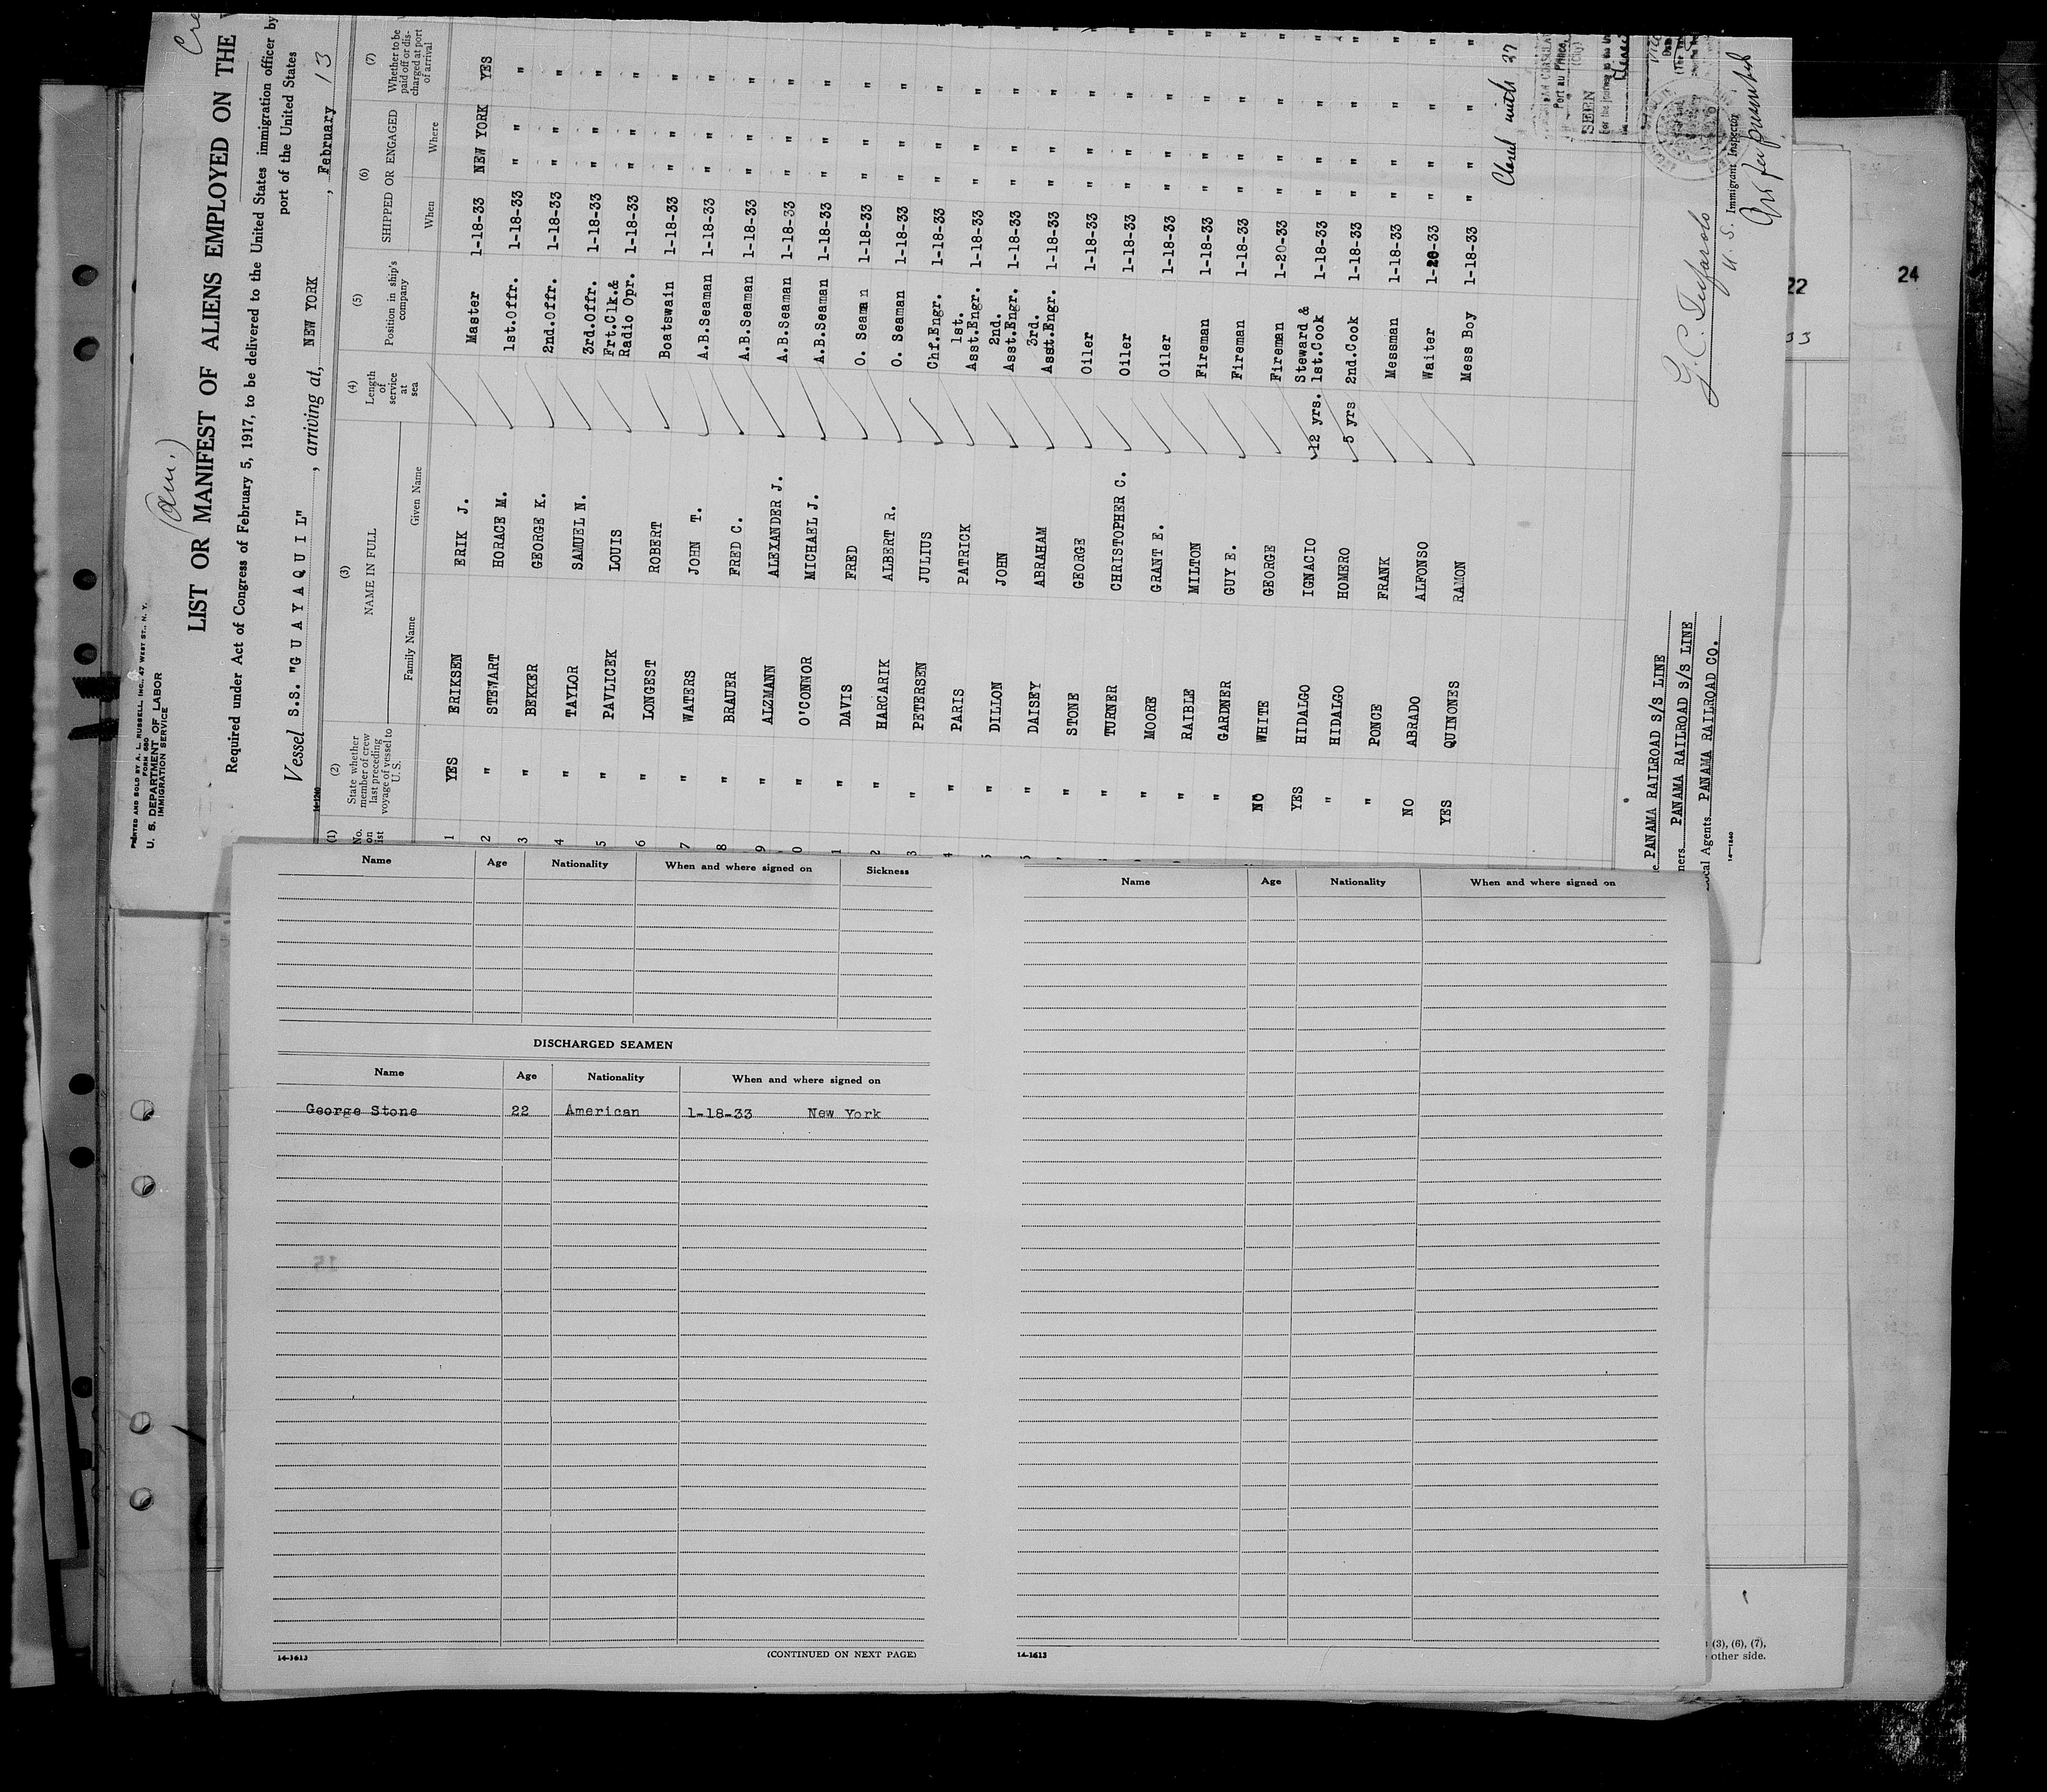 PRINTED AND SOLD BY A. L. RUSSELL, INC., 47 WEST ST., N. Y.
FORM 680
U. S. DEPARTMENT OF LABOR
IMMIGRATION SERVICE
(am.)
LIST OR MANIFEST OF ALIENS EMPLOYED ON THE
Required under Act of Congress of February 5, 1917, to be delivered to the United States immigration officer by
port of the United States
Vessel S.S. "G U A Y A Q U I L", arriving at, NEW YORK, February 13
14-1240
(1) No. on list (2) State whether member of crew last preceding voyage of vessel to U.S. (3) NAME IN FULL Family Name Given Name (4) Length of service at sea (5) Position in ship's company (6) SHIPPED OR ENGAGED When Where (7) Whether to be paid off or discharged at port of arrival
1 YES ERIKSEN ERIK J. Master 1-18-33 NEW YORK YES
2 " STEWART HORACE M. 1st.Offr. 1-18-33 " " "
3 " BEKKER GEORGE K. 2nd.Offr. 1-18-33 " " "
4 " TAYLOR SAMUEL N. 3rd.Offr. 1-18-33 " " "
5 " PAVLICEK LOUIS Frt.Clk.& Radio Opr. 1-18-33 " " "
6 " LONGEST ROBERT Boatswain 1-18-33 " " "
7 " WATERS JOHN T. A.B.Seaman 1-18-33 " " "
8 " BRAUER FRED C. A.B.Seaman 1-18-33 " " "
9 " ALZMANN ALEXANDER J. A.B.Seaman 1-18-33 " " "
0 " O'CONNOR MICHAEL J. A.B.Seaman 1-18-33 " " "
1 " DAVIS FRED O. Seaman 1-18-33 " " "
2 " HARCARIK ALBERT R. O. Seaman 1-18-33 " " "
3 " PETERSEN JULIUS Chf.Engr. 1-18-33 " " "
4 " PARIS PATRICK 1st. Asst.Engr. 1-18-33 " " "
5 " DILLON JOHN 2nd. Asst.Engr. 1-18-33 " " "
" DAISEY ABRAHAM 3rd. Asst.Engr. 1-18-33 " " "
" STONE GEORGE Oiler 1-18-33 " " "
" TURNER CHRISTOPHER C. Oiler 1-18-33 " " "
" MOORE GRANT E. Oiler 1-18-33 " " "
" RAIBLE MILTON Fireman 1-18-33 " " "
" GARDNER GUY E. Fireman 1-18-33 " " "
NO WHITE GEORGE Fireman 1-20-33 " " "
YES HIDALGO IGNACIO 12 yrs. Steward & 1st.Cook 1-18-33 " " "
" HIDALGO HOMERO 5 yrs 2nd.Cook 1-18-33 " " "
" PONCE FRANK Messman 1-18-33 " " "
NO ABRADO ALFONSO Waiter 1-20-33 " " "
YES QUINONES RAMON Mess Boy 1-18-33 " " "
Closed with 27
Port au Prince,
(City)
SEEN
For the journey to the
U. S. Immigrant Inspector
PANAMA RAILROAD S/S LINE
ners PANAMA RAILROAD S/S LINE
Local Agents PANAMA RAILROAD CO.
14-1240
22
24
33
Name Age Nationality When and where signed on Sickness
DISCHARGED SEAMEN
Name Age Nationality When and where signed on
George Stone 22 American 1-18-33 New York
14-1613 (CONTINUED ON NEXT PAGE)
Name Age Nationality When and where signed on
14-1613
(3), (6), (7),
other side.